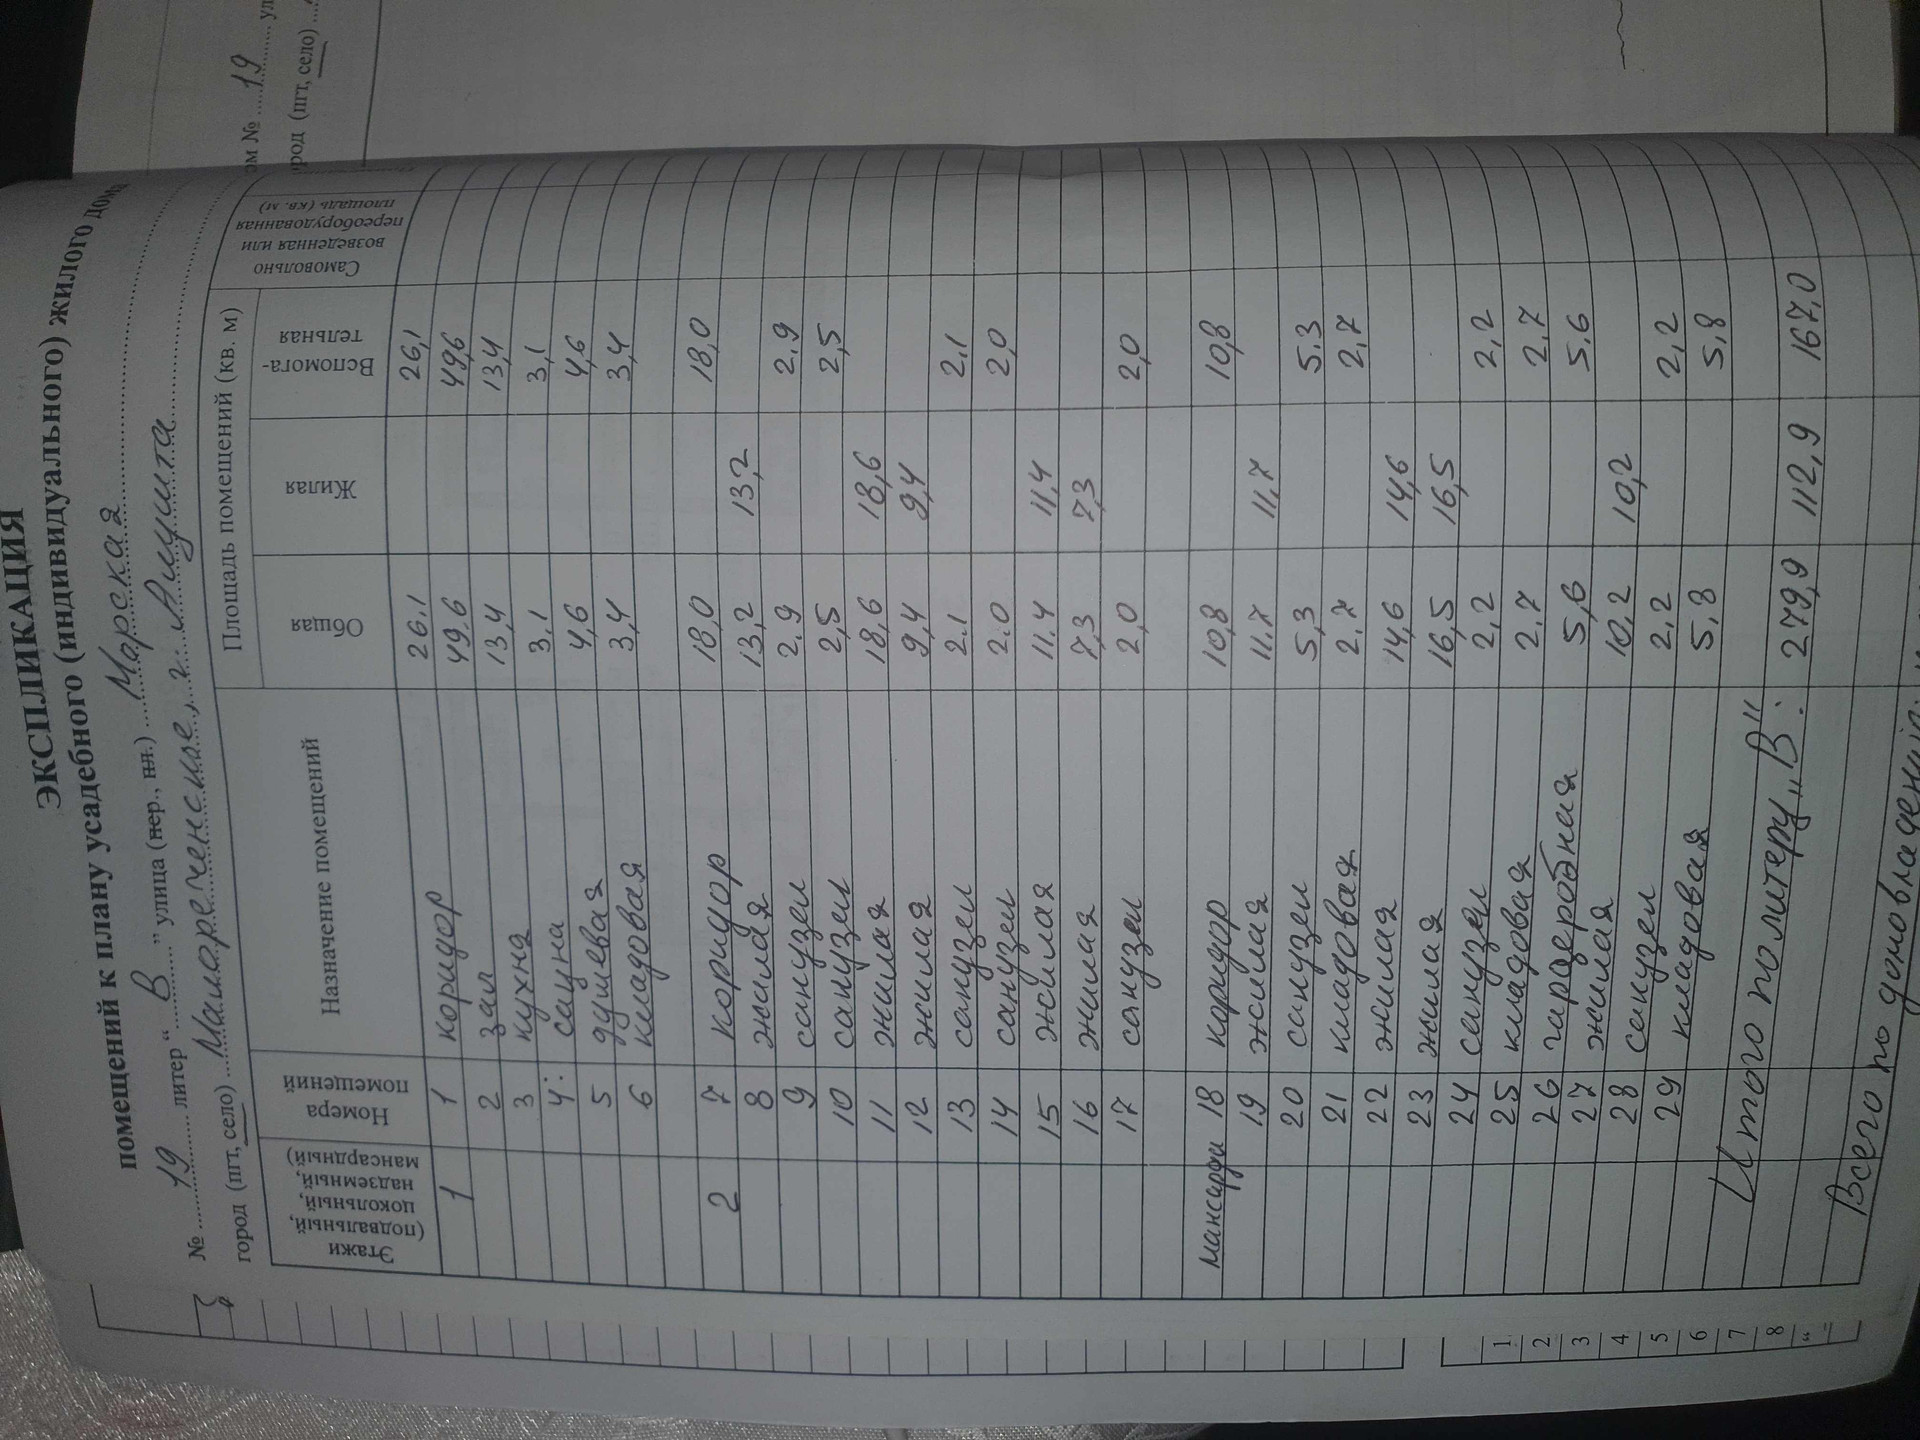 ЭКСПЛИКАЦИЯ
помещений к плану усадебного (индивидуального) жилого дома
№ 19 литер " В " улица (пер., пл.) Морская
город (пгт, село) Малореченское, г. Алушта
Этажи (подвальный, цокольный, надземный, мансардный) Номера помещений Назначение помещений Площадь помещений (кв. м) Самовольно возведенная или переоборудованная площадь (кв. м)
Общая Жилая Вспомога-тельная
1 1 коридор 26.1 26,1
2 зал 49.6 49,6
3 кухня 13,4 13,4
4. сауна 3,1 3,1
5 душевая 4,6 4,6
6 кладовая 3,4 3,4
2 7 коридор 18,0 18,0
8 жилая 13,2 13,2
9 санузел 2.9 2.9
10 санузел 2,5 2,5
11 жилая 18,6 18,6
12 жилая 9,4 9,4
13 санузел 2.1 2.1
14 санузел 2.0 2,0
15 жилая 11.4 11,4
16 жилая 7,3 7,3
17 санузел 2,0 2,0
мансардн 18 коридор 10,8 10,8
19 жилая 11.7 11,7
20 санузел 5,3 5.3
21 кладовая 2.7 2,7
22 жилая 14,6 14,6
23 жилая 16,5 16,5
24 санузел 2,2 2,2
25 кладовая 2.7 2,7
26 гардеробная 5,6 5.6
27 жилая 10,2 10,2
28 санузел 2,2 2,2
29 кладовая 5,8 5,8
Итого по литеру „В": 279,9 112,9 167,0
Всего по домовладению:
ом № 19 ул
род (пгт, село)
1.
2
3
4
5
6
7
8